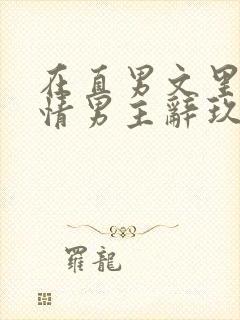 在直男文里
情男主辭玖
羅龍